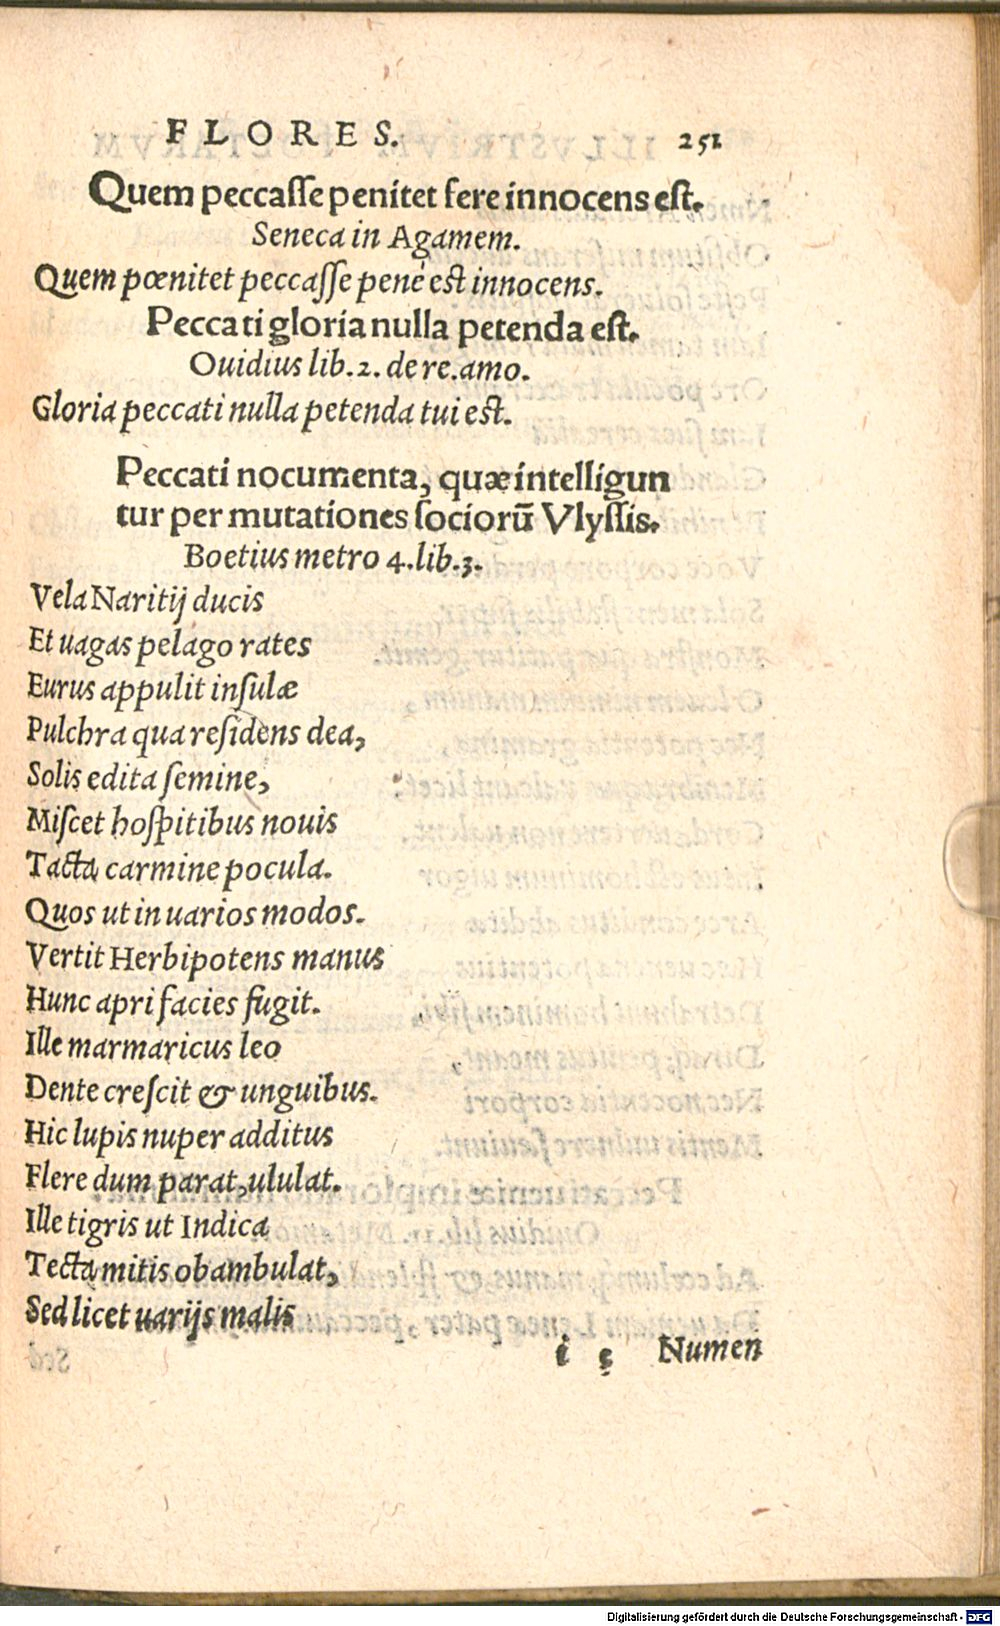 FLORES. 251
Quem peccasse penitet fere innocens est.
Seneca in Agamem.
Quem pœnitet peccasse pene est innocens.
Peccati gloria nulla petenda est.
Ouidius lib. 2. de re. amo.
Gloria peccati nulla petenda tui est.
Peccati nocumenta, quæ intelligun
tur per mutationes sociorū Vlyssis.
Boetius metro 4. lib. 3.
Vela Naritij ducis
Et uagas pelago rates
Eurus appulit insulæ
Pulchra qua residens dea,
Solis edita semine,
Miscet hospitibus nouis
Tacta carmine pocula.
Quos ut in uarios modos.
Vertit Herbipotens manus
Hunc apri facies fugit.
Ille marmaricus leo
Dente crescit & unguibus.
Hic lupis nuper additus
Flere dum parat, ululat.
Ille tigris ut Indica
Tecta mitis obambulat,
Sed licet uarijs malis
i 5 Numen
Digitalisierung gefördert durch die Deutsche Forschungsgemeinschaft - DFG